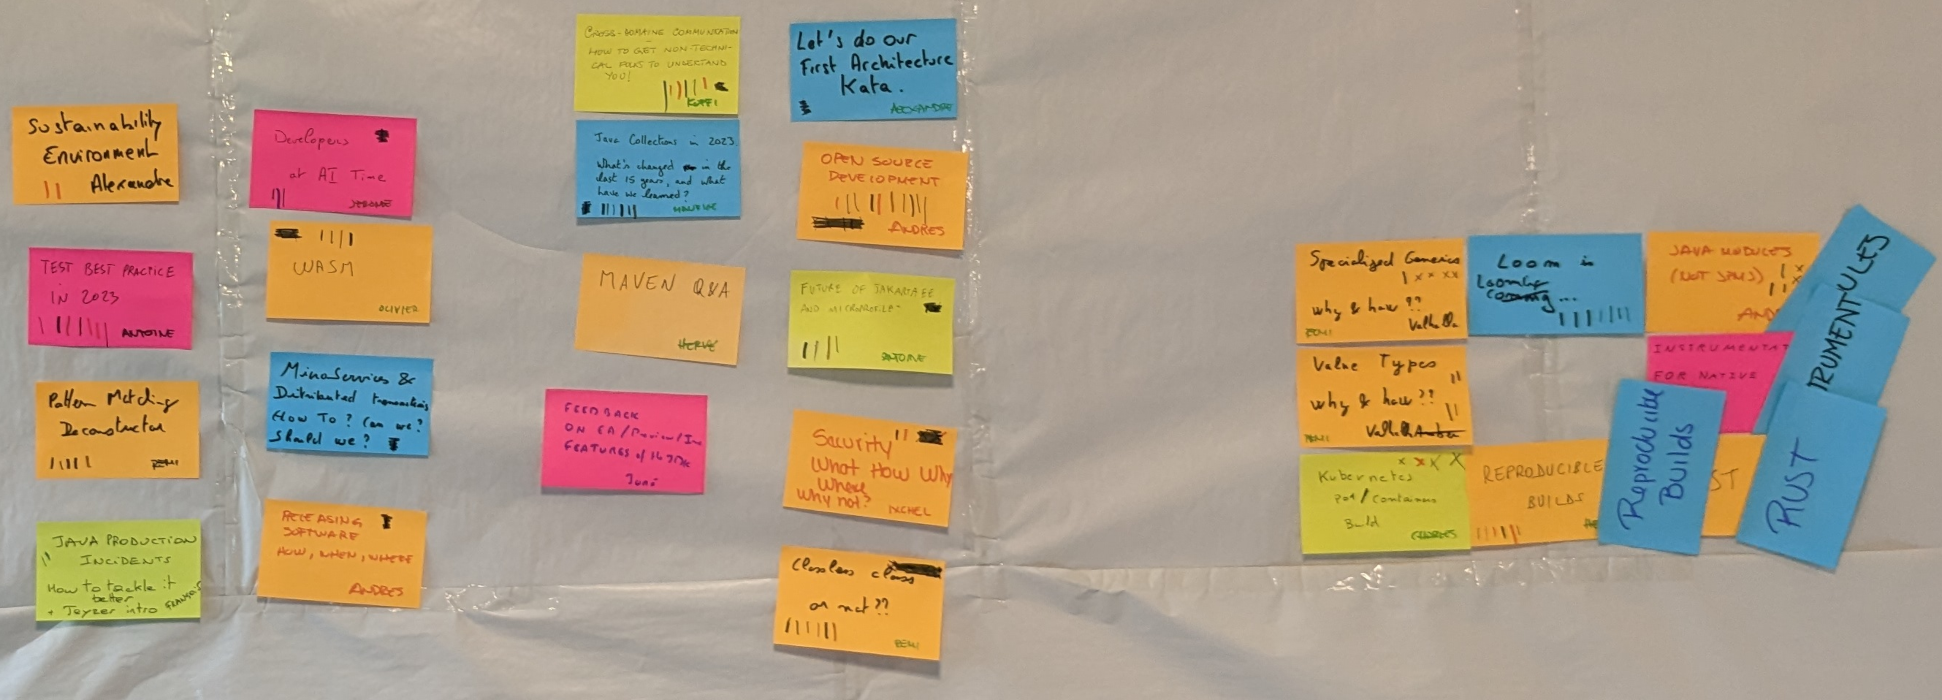 Sustainability
Environment
Alexandre
TEST BEST PRACTICE
IN 2023
ANTOINE
Pattern Matching
Deconstructor
REMI
JAVA PRODUCTION
INCIDENTS
How to tackle it
better
+ Jeyzer intro
Developers
at AI Time
JEROME
WASM
OLIVIER
MicroServices &
Distributed transactions
How To? Can we?
Should we?
RELEASING
SOFTWARE
HOW, WHEN, WHERE
ANDRES
CROSS-DOMAINE COMMUNICATION
HOW TO GET NON-TECHNI-
CAL FOLKS TO UNDERSTAND
YOU!
Java Collections in 2023
What's changed in the
last 15 years, and what
have we learned?
MAURICE
MAVEN Q&A
HERVÉ
FEEDBACK
ON EA/Preview/Inc
FEATURES of the JDK
Let's do our
First Architecture
Kata.
ALEXANDRE
OPEN SOURCE
DEVELOPMENT
ANDRES
FUTURE OF JAKARTA EE
AND MICROPROFILE
ANTOINE
Security
What How Why
Where
Why not?
IXCHEL
Classless class
or not??
REMI
Specialized Generics
why & how??
REMI Valhalla
Value Types
why & how??
REMI Valhalla
Kubernetes
pod/containers
Build
CHARLES
Loom in
Looming
...
REPRODUCIBLE
BUILDS
JAVA MODULES
(NOT JPMS)
AND
INSTRUMENTAT
FOR NATIVE
ST
Reproducible
Builds
ULES
RUMENT
RUST